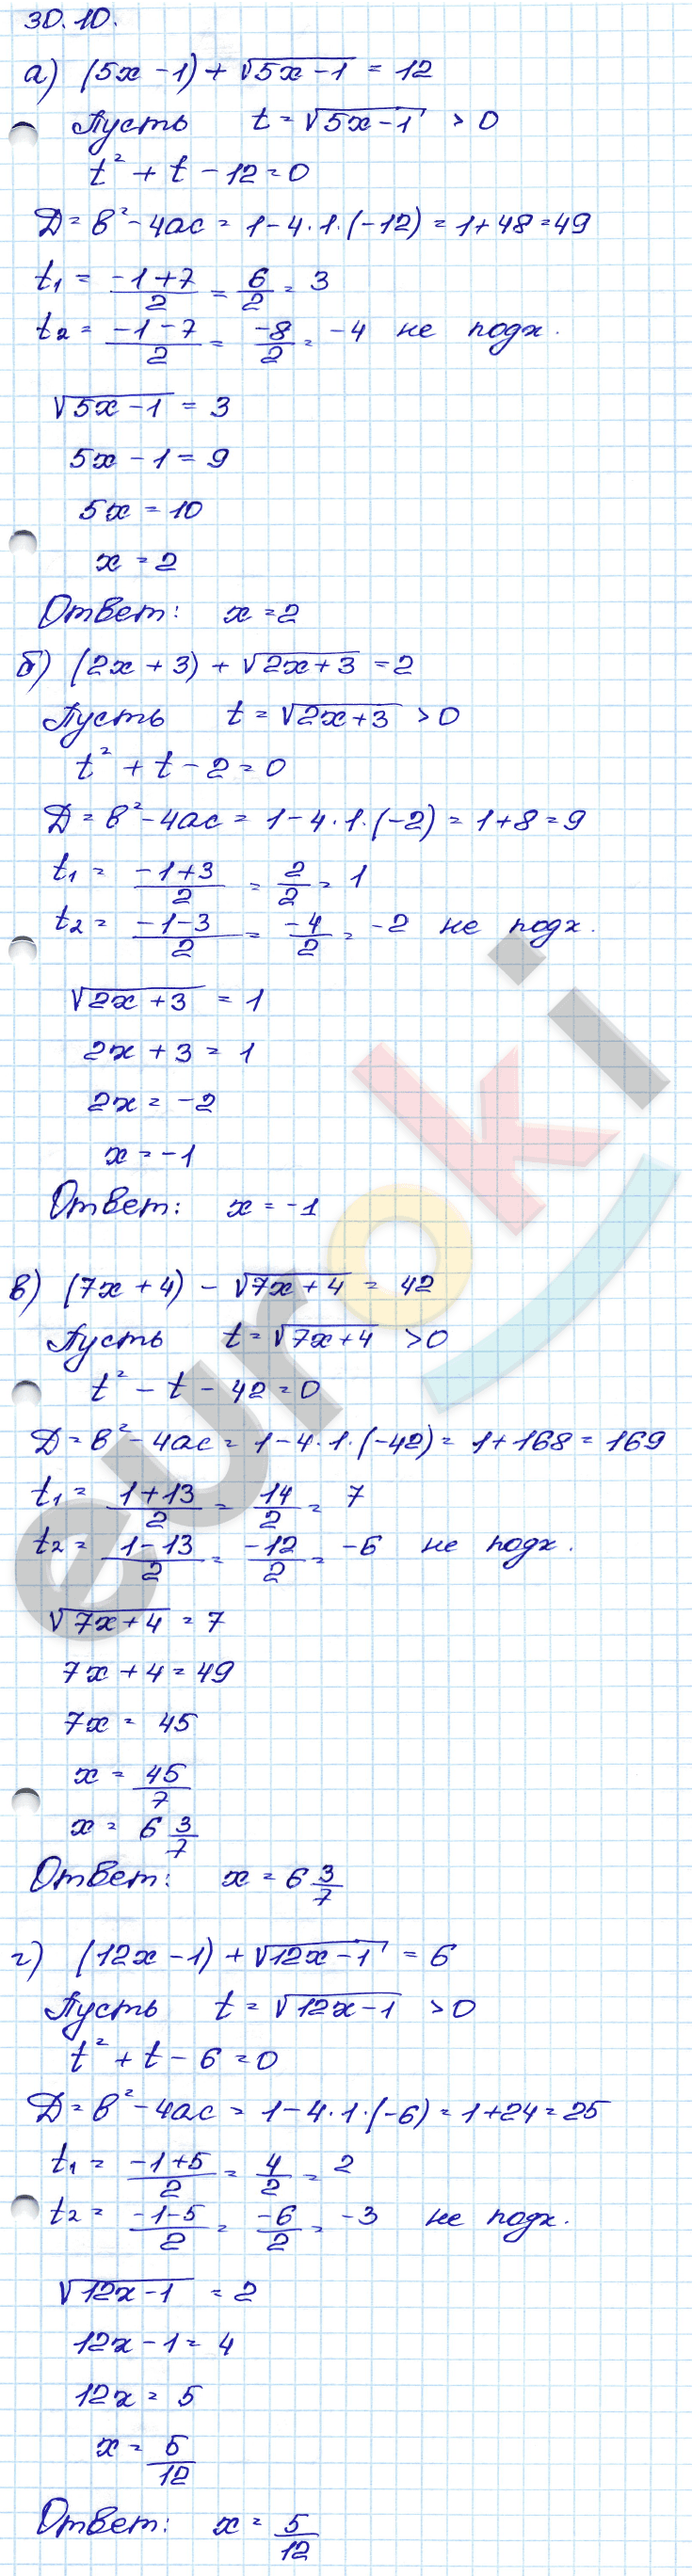 30.10.
а) (5x - 1) + √(5x - 1) = 12
Пусть t = √(5x - 1) > 0
t² + t - 12 = 0
Д = в² - 4ac = 1 - 4·1·(-12) = 1 + 48 = 49
t₁ = (-1+7)/2 = 6/2 = 3
t₂ = (-1-7)/2 = -8/2 = -4 не подх.
√(5x - 1) = 3
5x - 1 = 9
5x = 10
x = 2
Ответ: x = 2
б) (2x + 3) + √(2x + 3) = 2
Пусть t = √(2x + 3) > 0
t² + t - 2 = 0
Д = в² - 4ac = 1 - 4·1·(-2) = 1 + 8 = 9
t₁ = (-1+3)/2 = 2/2 = 1
t₂ = (-1-3)/2 = -4/2 = -2 не подх.
√(2x + 3) = 1
2x + 3 = 1
2x = -2
x = -1
Ответ: x = -1
в) (7x + 4) - √(7x + 4) = 42
Пусть t = √(7x + 4) > 0
t² - t - 42 = 0
Д = в² - 4ac = 1 - 4·1·(-42) = 1 + 168 = 169
t₁ = (1+13)/2 = 14/2 = 7
t₂ = (1-13)/2 = -12/2 = -6 не подх.
√(7x + 4) = 7
7x + 4 = 49
7x = 45
x = 45/7
x = 6 3/7
Ответ: x = 6 3/7
г) (12x - 1) + √(12x - 1) = 6
Пусть t = √(12x - 1) > 0
t² + t - 6 = 0
Д = в² - 4ac = 1 - 4·1·(-6) = 1 + 24 = 25
t₁ = (-1+5)/2 = 4/2 = 2
t₂ = (-1-5)/2 = -6/2 = -3 не подх.
√(12x - 1) = 2
12x - 1 = 4
12x = 5
x = 5/12
Ответ: x = 5/12
euroki